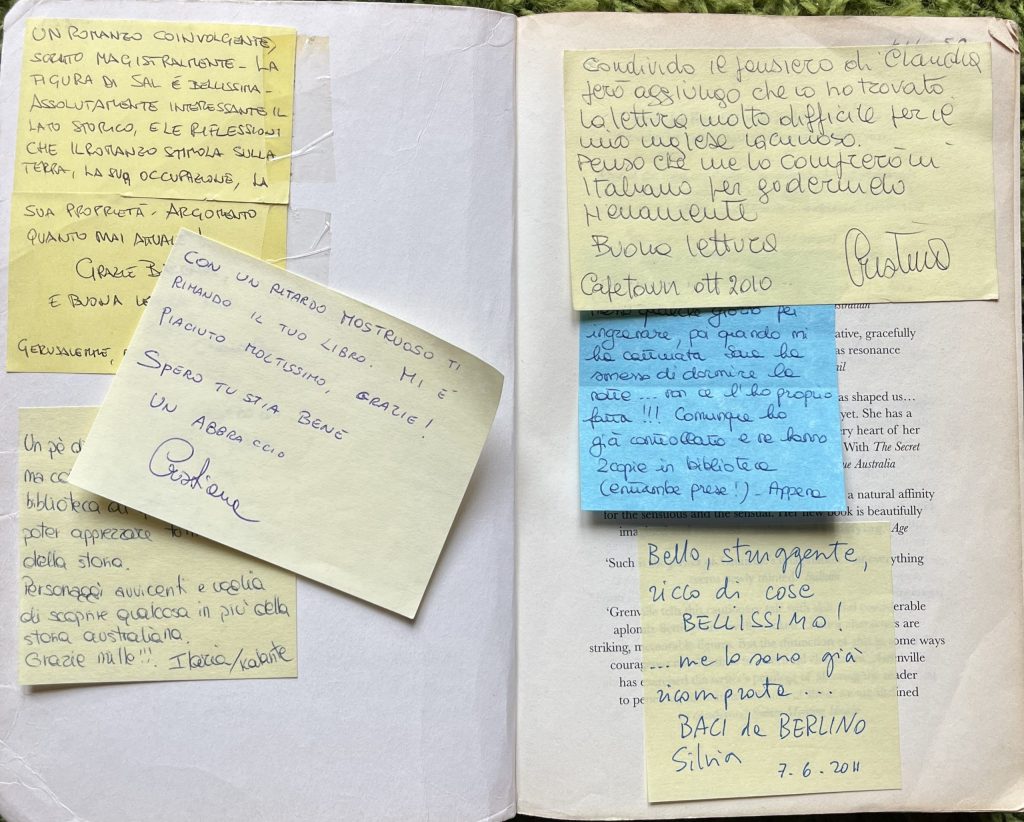 UN ROMANZO COINVOLGENTE,
MAGISTRALMENTE - LA
FIGURA DI SAL È BELLISSIMA -
ASSOLUTAMENTE INTERESSANTE IL
LATO STORICO, E LE RIFLESSIONI
CHE IL ROMANZO STIMOLA SULLA
TERRA, LA SUA OCCUPAZIONE, LA
SUA PROPRIETÀ - ARGOMENTO
QUANTO MAI
GRAZIE
E BUONA
GERUSALEMME,
CON UN RITARDO MOSTRUOSO TI
RIMANDO IL TUO LIBRO. MI È
PIACIUTO MOLTISSIMO, GRAZIE!
SPERO TU STIA BENE
UN ABBRACCIO
Cristiana
Un pò
ma
biblioteca
poter apprezzare
della storia.
Personaggi avvicenti e voglia
di scoprire qualcosa in più della
storia australiana.
Grazie mille!!! Ilaria/kalante
Condivido il pensiero di Claudia
però aggiungo che io ho trovato
la lettura molto difficile per il
mio inglese lacunoso.
Penso che me lo comprerò in
Italiano per godermelo
pienamente
Buona lettura
Cristina
Capetown ott 2010
per
ingranare, poi quando mi
ha catturata Sara ha
smesso di dormire la
notte... non ce l'ho proprio
fatta!!! Comunque ho
già controllato e ne hanno
2 copie in biblioteca
(entrambe prese!) - Appena
ative, gracefully
as resonance
ail
as shaped us...
yet. She has a
ery heart of her
With The Secret
ue Australia
a natural affinity
for the sensuous and the sensual. Her new book is beautifully
Age
'Such
erything
'Grenville
erable
aplom
rs are
striking,
ome ways
courag
nville
has
ader
to pe
ined
Bello, struggente,
ricco di cose
BELLISSIMO!
... me lo sono già
ricomprata...
BACI da BERLINO
Silvia
7-6-2011